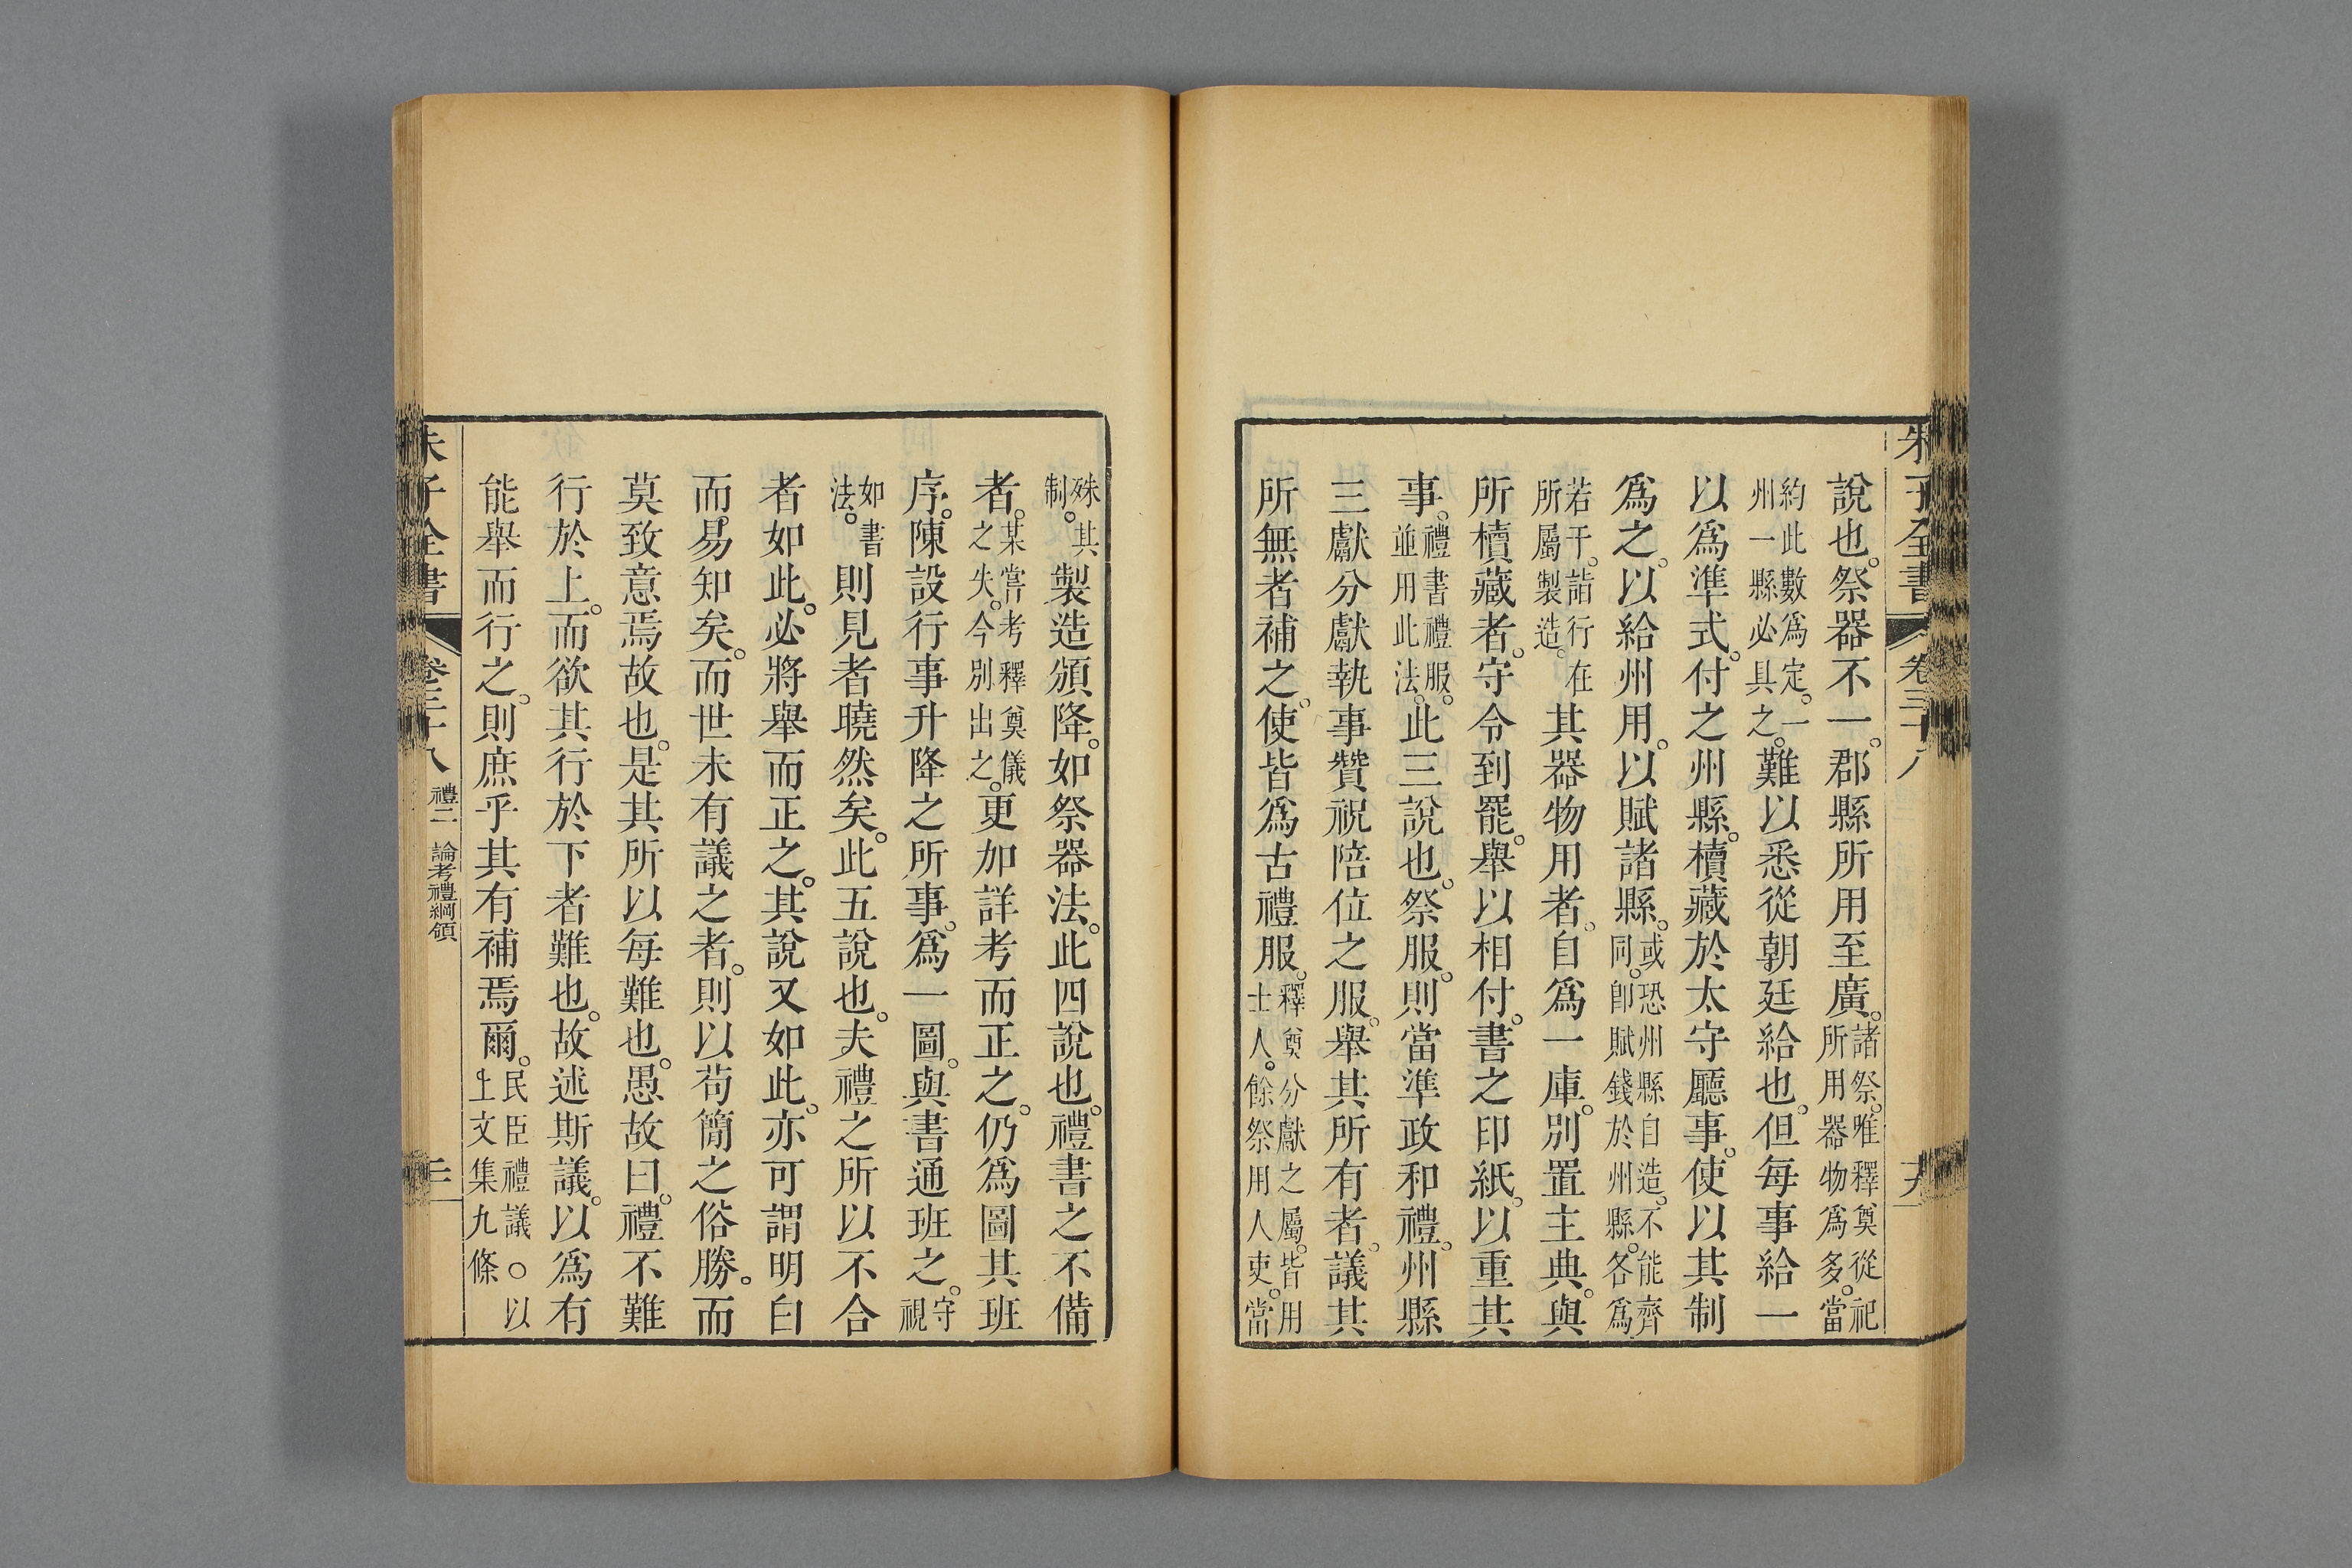 朱子全書 卷三十八
說也。祭器不一。郡縣所用至廣。諸祭。唯釋奠從祀所用器物爲多。當
約此數爲定。一州一縣必具之。難以悉從朝廷給也。但每事給一
以爲準式。付之州縣。櫝藏於太守廳事。使以其制
爲之。以給州用。以賦諸縣。或恐州縣自造。不能齊同。卽賦錢於州縣。各爲
若干。詣行在所屬製造。其器物用者。自爲一庫。別置主典。與
所櫝藏者。守令到罷。舉以相付。書之印紙。以重其
事。禮書禮服。並用此法。此三說也。祭服。則當準政和禮。州縣
三獻分獻執事贊祝陪位之服。舉其所有者。議其
所無者補之。使皆爲古禮服。釋奠分獻之屬。皆用士人。餘祭用人吏。當
殊其制。製造頒降。如祭器法。此四說也。禮書之不備
者。某嘗考釋奠儀之失。今別出之。更加詳考而正之。仍爲圖其班
序。陳設行事升降之所事。爲一圖。與書通班之。守視
如書法。則見者曉然矣。此五說也。夫禮之所以不合
者如此。必將舉而正之。其說又如此。亦可謂明白
而易知矣。而世未有議之者。則以苟簡之俗勝。而
莫致意焉故也。是其所以每難也。愚故曰。禮不難
行於上。而欲其行於下者難也。故述斯議。以爲有
能舉而行之。則庶乎其有補焉爾。民臣禮議○以上文集九條
朱子全書 卷三十八 禮二 論考禮綱領